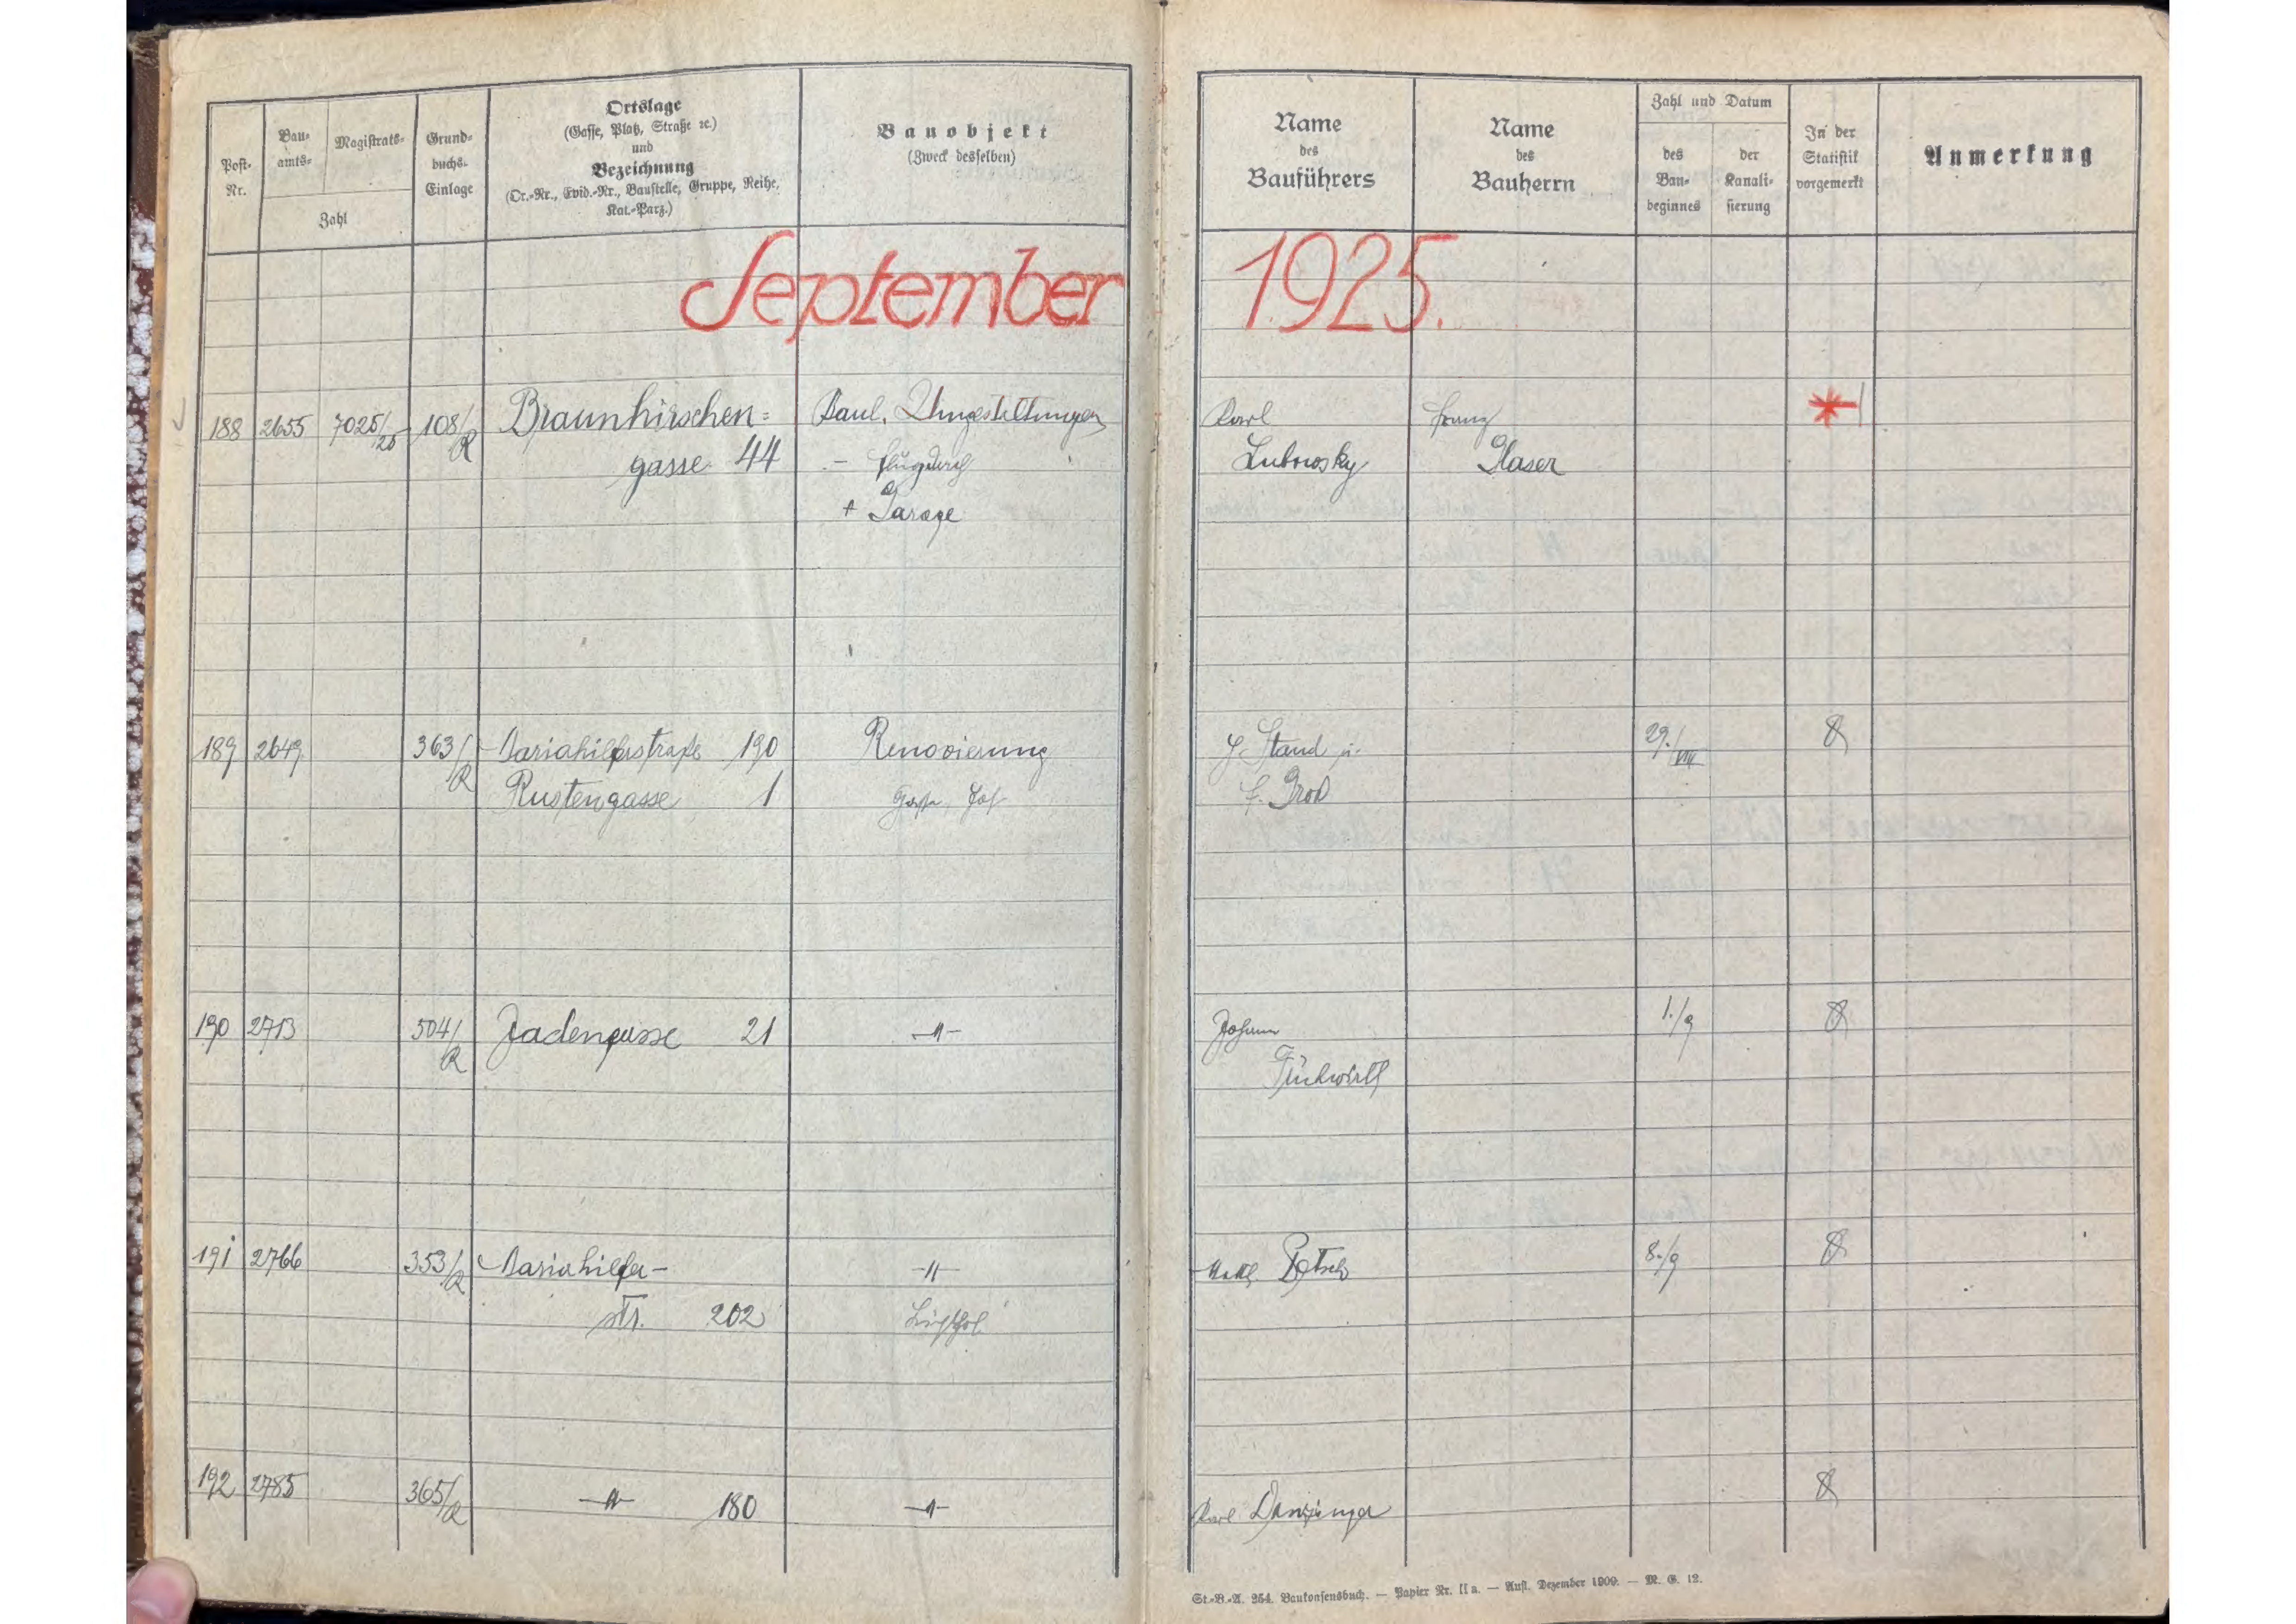 Post-
Nr.
Bau-
amts-
Magistrats-
Zahl
Grund-
buchs-
Einlage
Ortslage
(Gasse, Platz, Straße ec.)
und
Bezeichnung
(Or.-Nr., Evid.-Nr., Baustelle, Gruppe, Reihe,
Kat.-Parz.)
Bauobjekt
(Zweck desselben)
Name
des
Bauführers
Name
des
Bauherrn
Zahl und Datum
des
Bau-
beginnes
der
Kanali-
sierung
In der
Statistik
vorgemerkt
Anmerkung
September 1925.
188 2655 7025/25 108/R Braunhirschen= Baul. Umgestaltungen Karl Franz
gasse 44 Lubowsky Glaser
+ Garage
189 2649 363/R Mariahilferstraße 190 Renovierung J. Stand u. 29./VIII
Rustengasse 1 Gasse, Hof
190 2713 504/R Jadengasse 21 -"- Johann 1./9
191 2766 353/R Mariahilfer- -"- 8./9
str. 202 Lichthof
192 2785 365/R -"- 180 -"- Karl Danzinger
St.-B.-A. 254. Baukonsensbuch. — Papier Nr. II a. — Aufl. Dezember 1909. — M. G. 12.